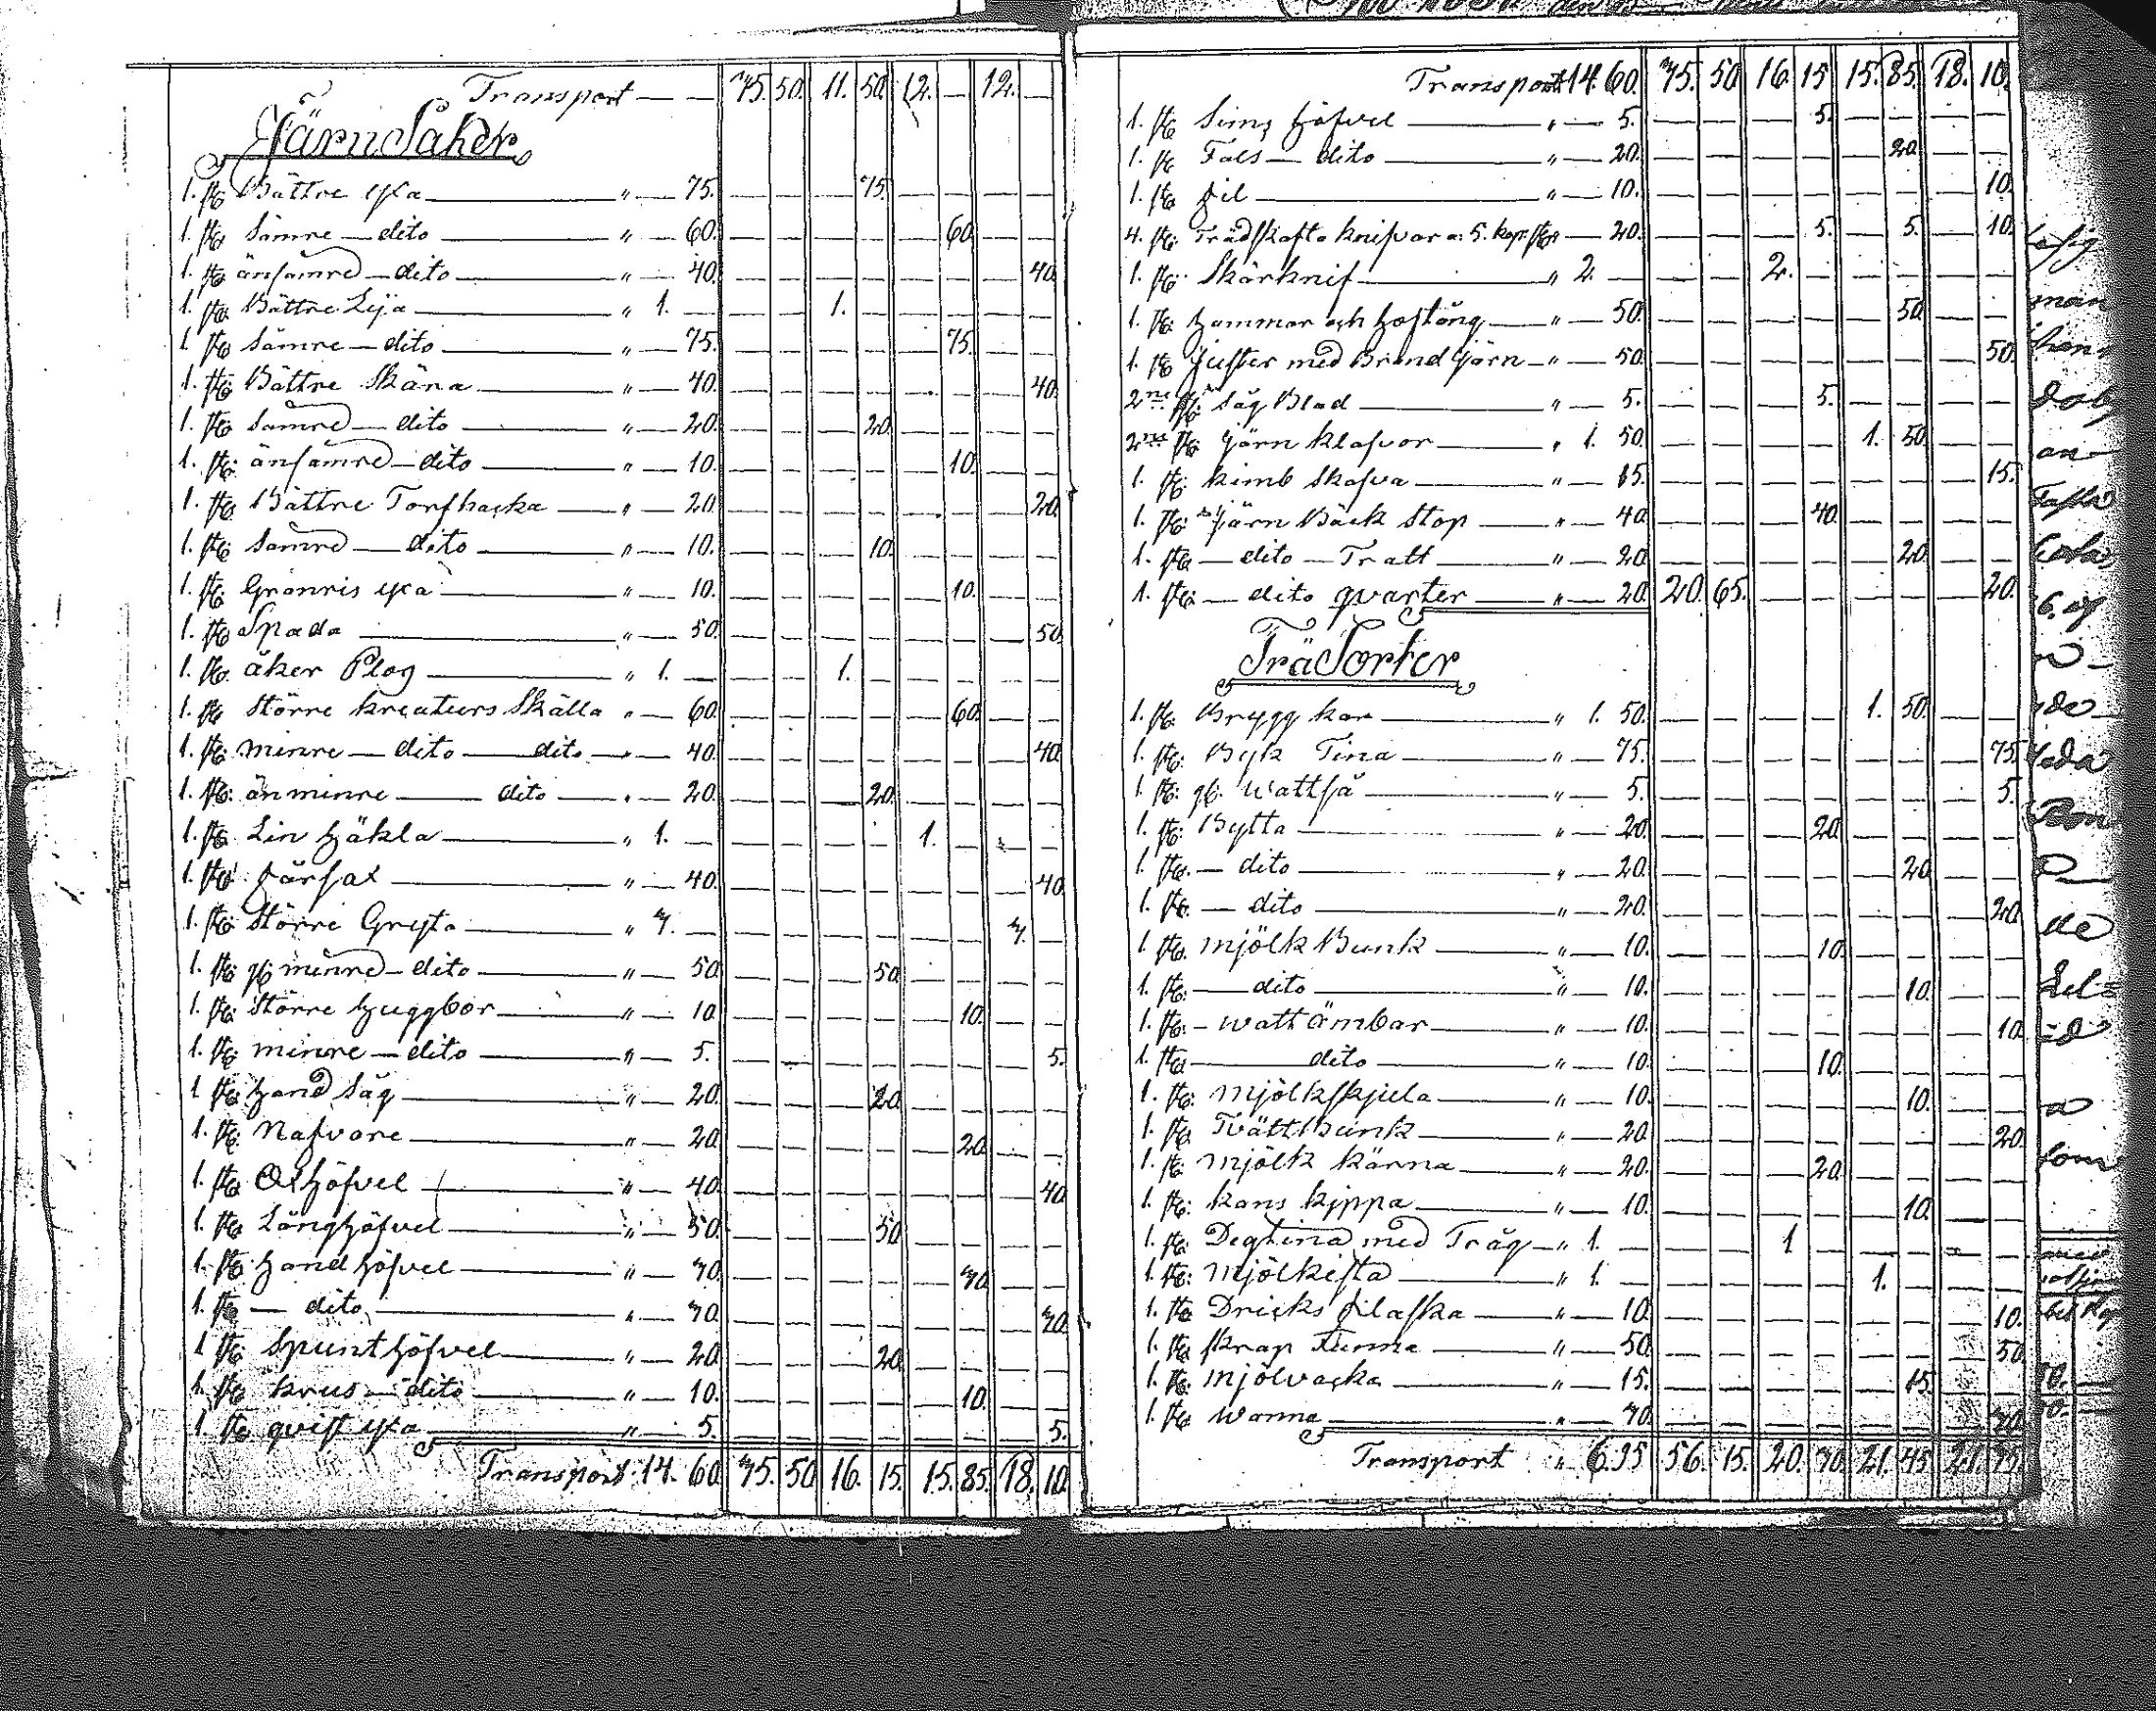 Transport — — 75. 50. 11. 50. 12. — 12. —
Järn Saker
1. st: Bättre yxa — " — 75. — — — 75. — — — —
1. st: Sämre — dito — " — 60. — — — — — 60. — —
1. st: änsämre — dito — " — 40. — — — — — — — 40.
1. st: Bättre Lija — " 1. — — — 1. — — — — —
1. st: Sämre — dito — " — 75. — — — — — 75. — —
1. st: Bättre Skära — " — 40. — — — — — — — 40.
1. st: Sämre — dito — " — 20. — — — 20. — — — —
1. st: änsämre — dito — " — 10. — — — — — 10. — —
1. st: Bättre Torfhacka — " — 20. — — — — — — — 20.
1. st: Sämre — dito — " — 10. — — — 10. — — — —
1. st: Granris yxa — " — 10. — — — — — 10. — —
1. st: Spada — " — 50. — — — — — — — 50.
1. st: åker Plog — " 1. — — — 1. — — — — —
1. st: Större kreaturs Skälla " — 60. — — — — — 60. — —
1. st: minre — dito — dito — " — 40. — — — — — — — 40.
1. st: än minre — dito — " — 20. — — — 20. — — — —
1. st: Lin häkla — " 1. — — — — — 1. — — —
1. st: fårsax — " — 40. — — — — — — — 40.
1. st: Större Gryta — " 7. — — — — — — — 7. —
1. st: gl: minre — dito — " — 50. — — — 50. — — — —
1. st: Större huggbor — " — 10. — — — — — 10. — —
1. st: minre — dito — " — 5. — — — — — — — 5.
1. st: hand Såg — " — 20. — — — 20. — — — —
1. st: Nafvare — " — 20. — — — — — 20. — —
1. st: Oxhöfvel — " — 40. — — — — — — — 40.
1. st: Långhöfvel — " — 50. — — — 50. — — — —
1. st: handhöfvel — " — 70. — — — — — 70. — —
1. st: — dito — " — 70. — — — — — — — 70.
1. st: Spunthöfvel — " — 20. — — — 20. — — — —
1. st: krus — dito — " — 10. — — — — — 10. — —
1. st: qvist yxa — " — 5. — — — — — — — 5.
Transport 14. 60. 75. 50. 16. 15. 15. 85. 18. 10.
Transport 14. 60. 75. 50. 16. 15. 15. 85. 18. 10.
1. st: Sims höfvel — " — 5. — — — 5. — — — —
1. st: Fals — dito — " — 20. — — — — — 20. — —
1. st: fil — " — 10. — — — — — — — 10.
4. st: Trädskafta knifvar a: 5. kop: st: — 20. — — — 5. — 5. — 10.
1. st: Skärknif — " 2. — — — 2. — — — — —
1. st: hammar och hoftång — " — 50. — — — — — 50. — —
1. st: Juster med Brand Järn — " — 50. — — — — — — — 50.
2ne st: Såg Blad — " — 5. — — — 5. — — — —
2ne st: Järn klafvor — " 1. 50. — — — — 1. 50. — —
1. st: kimb Skafva — " — 15. — — — — — — — 15.
1. st: Järn Bäck Stop — " — 40. — — — 40. — — — —
1. st: — dito — Tratt — " — 20. — — — — — 20. — —
1. st: — dito qvarter — " — 20. 20. 65. — — — — — 20.
Trä Sorter
1. st: Brygg kar — " 1. 50. — — — — 1. 50. — —
1. st: Byk Tina — " — 75. — — — — — — — 75.
1. st: gl: Wattså — " — 5. — — — — — — — 5.
1. st: Bytta — " — 20. — — — 20. — — — —
1. st: — dito — " — 20. — — — — — 20. — —
1. st: — dito — " — 20. — — — — — — — 20.
1. st: mjölk Bunk — " — 10. — — — 10. — — — —
1. st: — dito — " — 10. — — — — — 10. — —
1. st: — watt ämbar — " — 10. — — — — — — — 10.
1. st: — dito — " — 10. — — — 10. — — — —
1. st: mjölkskjula — " — 10. — — — — — 10. — —
1. st: Tvättbunk — " — 20. — — — — — — — 20.
1. st: mjölk kärna — " — 20. — — — 20. — — — —
1. st: kans kippa — " — 10. — — — — — 10. — —
1. st: Degtina med Tråg — " 1. — — — 1 — — — — —
1. st: mjölkista — " 1. — — — — — 1. — — —
1. st: Dricks filaska — " — 10. — — — — — — — 10.
1. st: skrap Tunna — " — 50. — — — — — — — 50.
1. st: mjölvacka — " — 15. — — — — — 15. — —
1. st: Wanna — " — 70. — — — — — — — 70.
Transport " 6. 35 56. 15. 20. 70. 21. 45. 21. 95.